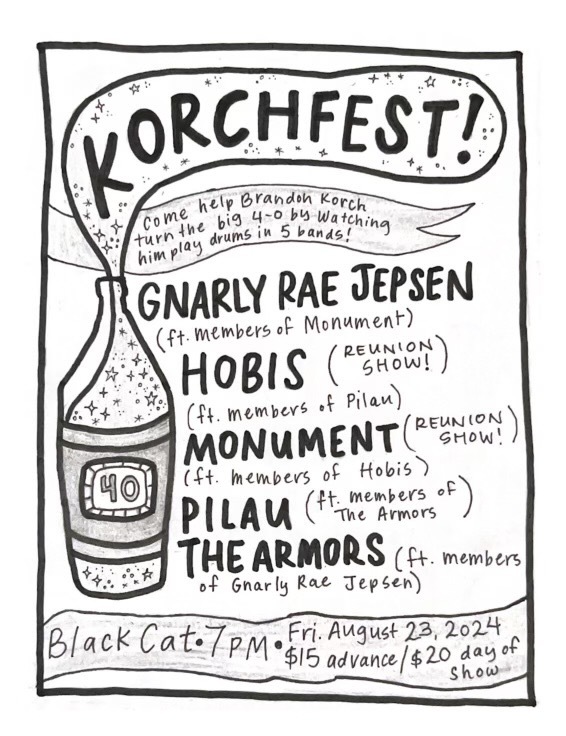 KORCHFEST!
Come help Brandon Korch
turn the big 4-0 by watching
him play drums in 5 bands!
GNARLY RAE JEPSEN
(ft. members of Monument)
HOBIS (REUNION SHOW!)
(ft. members of Pilau)
MONUMENT (REUNION SHOW!)
(ft. members of Hobis)
PILAU (ft. members of The Armors)
THE ARMORS (ft. members
of Gnarly Rae Jepsen)
40
Black Cat • 7PM • Fri. August 23, 2024
$15 advance/$20 day of show